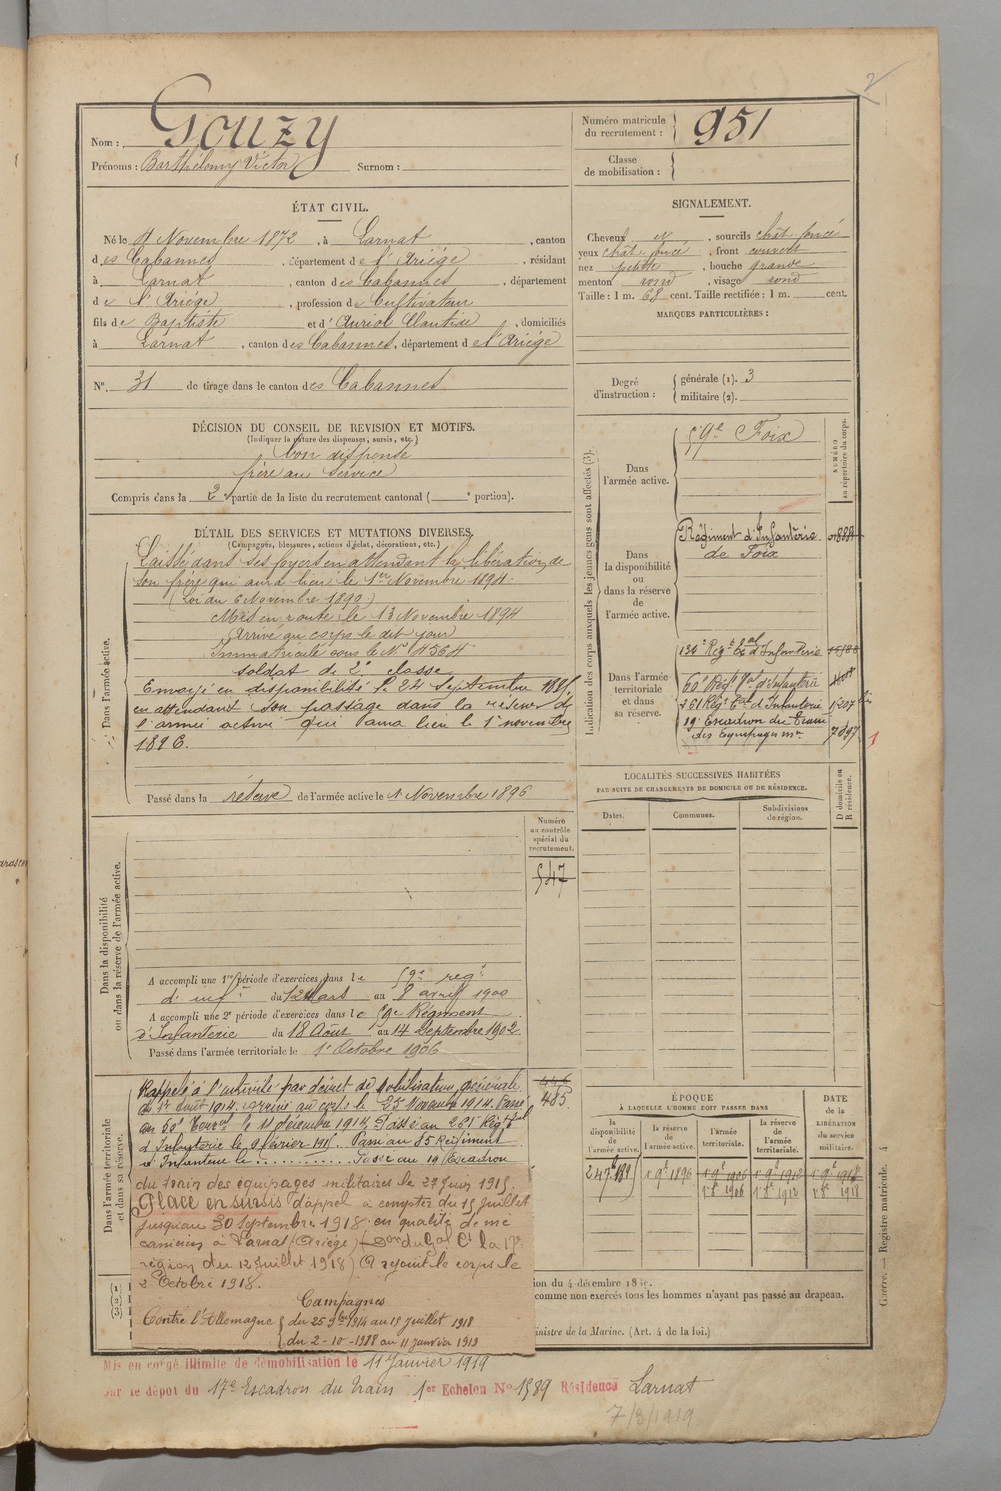 2
Nom : Gouzy
Prénoms : Barthélemy Victor Surnom :
Numéro matricule du recrutement : 951
Classe de mobilisation :
ÉTAT CIVIL.
Né le 4 Novembre 1872, à Larnat, canton
des Cabannes, département de l'Ariége, résidant
à Larnat, canton des Cabannes, département
de l'Ariége, profession de Cultivateur
fils de Baptiste et d'Auriol Claudine, domiciliés
à Larnat, canton des Cabannes, département de l'Ariége
N° 31 de tirage dans le canton des Cabannes
SIGNALEMENT.
Cheveux et, sourcils chât. foncé
yeux chât. foncé, front couvert
nez petite, bouche grande
menton rond, visage rond
Taille : 1 m. 68 cent. Taille rectifiée : 1 m. cent.
MARQUES PARTICULIÈRES :
Degré d'instruction : générale (1). 3
militaire (2).
DÉCISION DU CONSEIL DE REVISION ET MOTIFS.
(Indiquer la nature des dispenses, sursis, etc.)
bon dispensé
frère au service
Compris dans la 2e partie de la liste du recrutement cantonal ( e portion).
DÉTAIL DES SERVICES ET MUTATIONS DIVERSES.
(Campagnes, blessures, actions d'éclat, décorations, etc.)
Dans l'armée active.
Laissé dans ses foyers en attendant la libération de
son frère qui aura lieu le 1er Novembre 1894.
(Loi du 6 Novembre 1890.)
Mis en route le 13 Novembre 1894
Arrivé au corps le dit jour
Immatriculé sous le N° 4364
soldat de 2e classe
Envoyé en disponibilité le 24 Septembre 1895,
en attendant son passage dans la réserve de
l'armée active qui aura lieu le 1er novembre
1896.
Passé dans la réserve de l'armée active le 1 Novembre 1896
Indication des corps auxquels les jeunes gens sont affectés (3).
NUMÉRO au répertoire du corps.
Dans l'armée active.
59e Foix
Dans la disponibilité ou dans la réserve de l'armée active.
Régiment d'Infanterie
de Foix
Dans l'armée territoriale et dans sa réserve.
134e Régt Tal d'Infanterie
60e Régt Tal d'Infanterie
261 Régt Tal d'Infanterie 1207 bis
19e Escadron du Train
des Equipages mres 7097
LOCALITÉS SUCCESSIVES HABITÉES
PAR SUITE DE CHANGEMENTS DE DOMICILE OU DE RÉSIDENCE.
D domicile ou R résidence.
Dates. Communes. Subdivisions de région.
Dans la disponibilité ou dans la réserve de l'armée active.
Numéro au contrôle spécial du recrutement.
547
A accompli une 1re période d'exercices dans le 59e régt
d'inf.ie du 12 Mars au 8 avril 1900
A accompli une 2e période d'exercices dans le 59e Régiment
d'Infanterie du 18 Août au 14 Septembre 1902
Passé dans l'armée territoriale le 1er Octobre 1906
Dans l'armée territoriale et dans sa réserve.
446
485
Rappelé à l'activité par décret de mobilisation générale
du 1er Août 1914. Arrivé au corps le 25 Novembre 1914. Passé
au 60e Terral le 11 décembre 1914. Passé au 261 Régt Tal
d'Infanterie le 9 février 1915. Passé au 85 Régiment
d'Infanterie le ............ Passé au 19 Escadron
du train des équipages militaires le 29 Juin 1915.
Placé en sursis d'appel à compter du 15 Juillet
jusqu'au 30 Septembre 1918 en qualité de mé
canicien à Larnat (Ariège) (Don du Gal Ct la 17e
région du 12 Juillet 1918) A rejoint le corps le
2 Octobre 1918.
Campagnes
Contre l'Allemagne du 25 9bre 1914 au 15 Juillet 1918
du 2-10-1918 au 11 janvier 1919
ÉPOQUE
À LAQUELLE L'HOMME DOIT PASSER DANS
la disponibilité de l'armée active. la réserve de l'armée active. l'armée territoriale. la réserve de l'armée territoriale.
DATE de la LIBÉRATION du service militaire.
24 7e 1895 1er 9e 1896 1er 9e 1906 1er 9e 1912 1er 9e 1918
1er 8e 1906 1er 8e 1912 1er 8e 1918
(1)
(2)
(3)
ion du 4 décembre 18
comme non exercés tous les hommes n'ayant pas passé au drapeau.
inistre de la Marine. (Art. 4 de la loi.)
Guerre. — Registre matricule. 4
Mis en congé illimité de démobilisation le 11 Janvier 1919
par le dépot du 17e Escadron du train 1er Echelon N° 1589 Résidence Larnat
7/3/1919